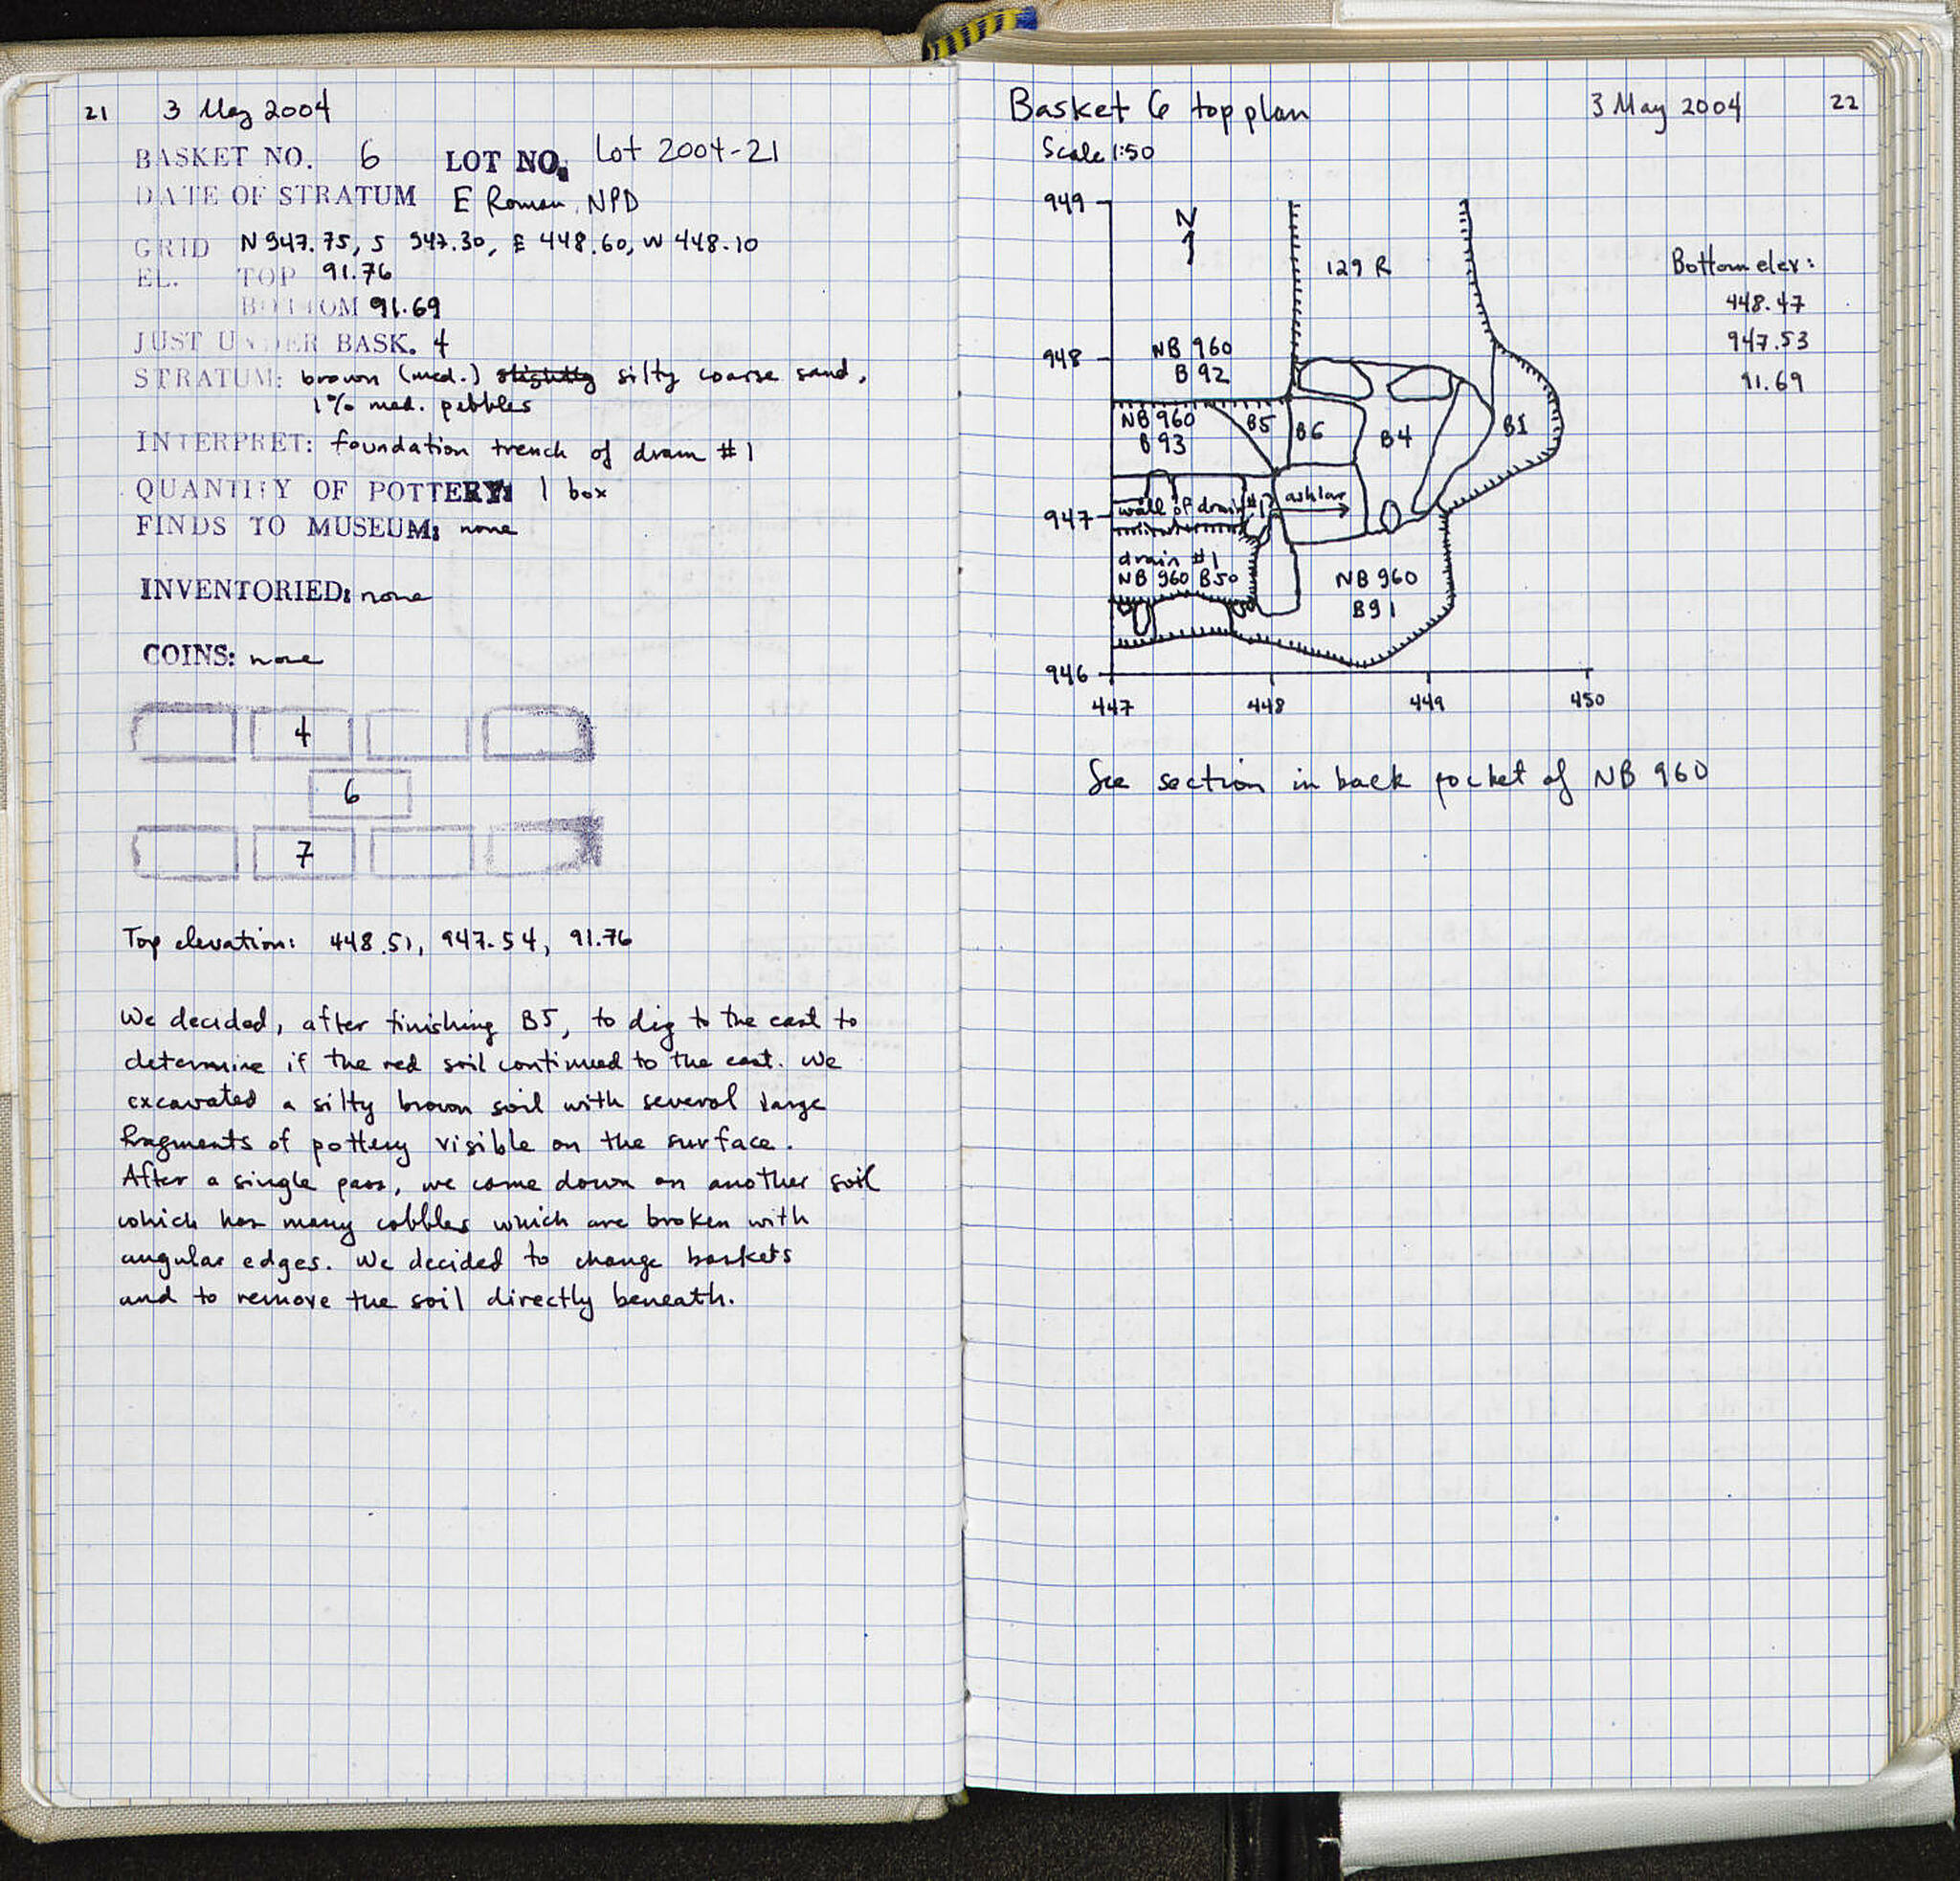 21 3 May 2004
BASKET NO. 6 LOT NO. Lot 2004-21
DATE OF STRATUM E Roman, NPD
GRID N 947.75, S 947.30, E 448.60, W 448.10
EL. TOP 91.76
BOTTOM 91.69
JUST UNDER BASK. 4
STRATUM: brown (med.) slightly silty coarse sand,
1% med. pebbles
INTERPRET: foundation trench of drain #1
QUANTITY OF POTTERY: 1 box
FINDS TO MUSEUM: none
INVENTORIED: none
COINS: none
4
6
7
Top elevation: 448.51, 947.54, 91.76
We decided, after finishing B5, to dig to the east to
determine if the red soil continued to the east. We
excavated a silty brown soil with several large
fragments of pottery visible on the surface.
After a single pass, we came down on another soil
which has many cobbles which are broken with
angular edges. We decided to change baskets
and to remove the soil directly beneath.
Basket 6 top plan 3 May 2004 22
Scale 1:50
949
N
129 R
Bottom elev:
448.47
947.53
91.69
948
NB 960
B 92
NB 960
B 93
B5
B6
B4
B1
947
wall of drain #1
ashlar
drain #1
NB 960 B50
NB 960
B91
946
447 448 449 450
See section in back pocket of NB 960